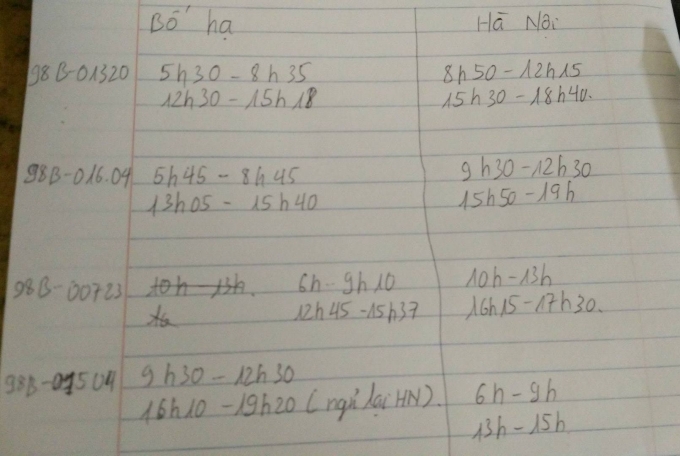 Bố hạ Hà Nội
98B-01320 5h30 - 8h35 8h50 - 12h15
12h30 - 15h18 15h30 - 18h40.
98B-016.04 5h45 - 8h45 9h30 - 12h30
13h05 - 15h40 15h50 - 19h
98B-00723 10h - 13h. 6h - 9h10 10h - 13h
12h45 - 15h37 16h15 - 17h30.
98B-01504 9h30 - 12h30
16h10 - 19h20 (ngủ lại HN). 6h - 9h
13h - 15h